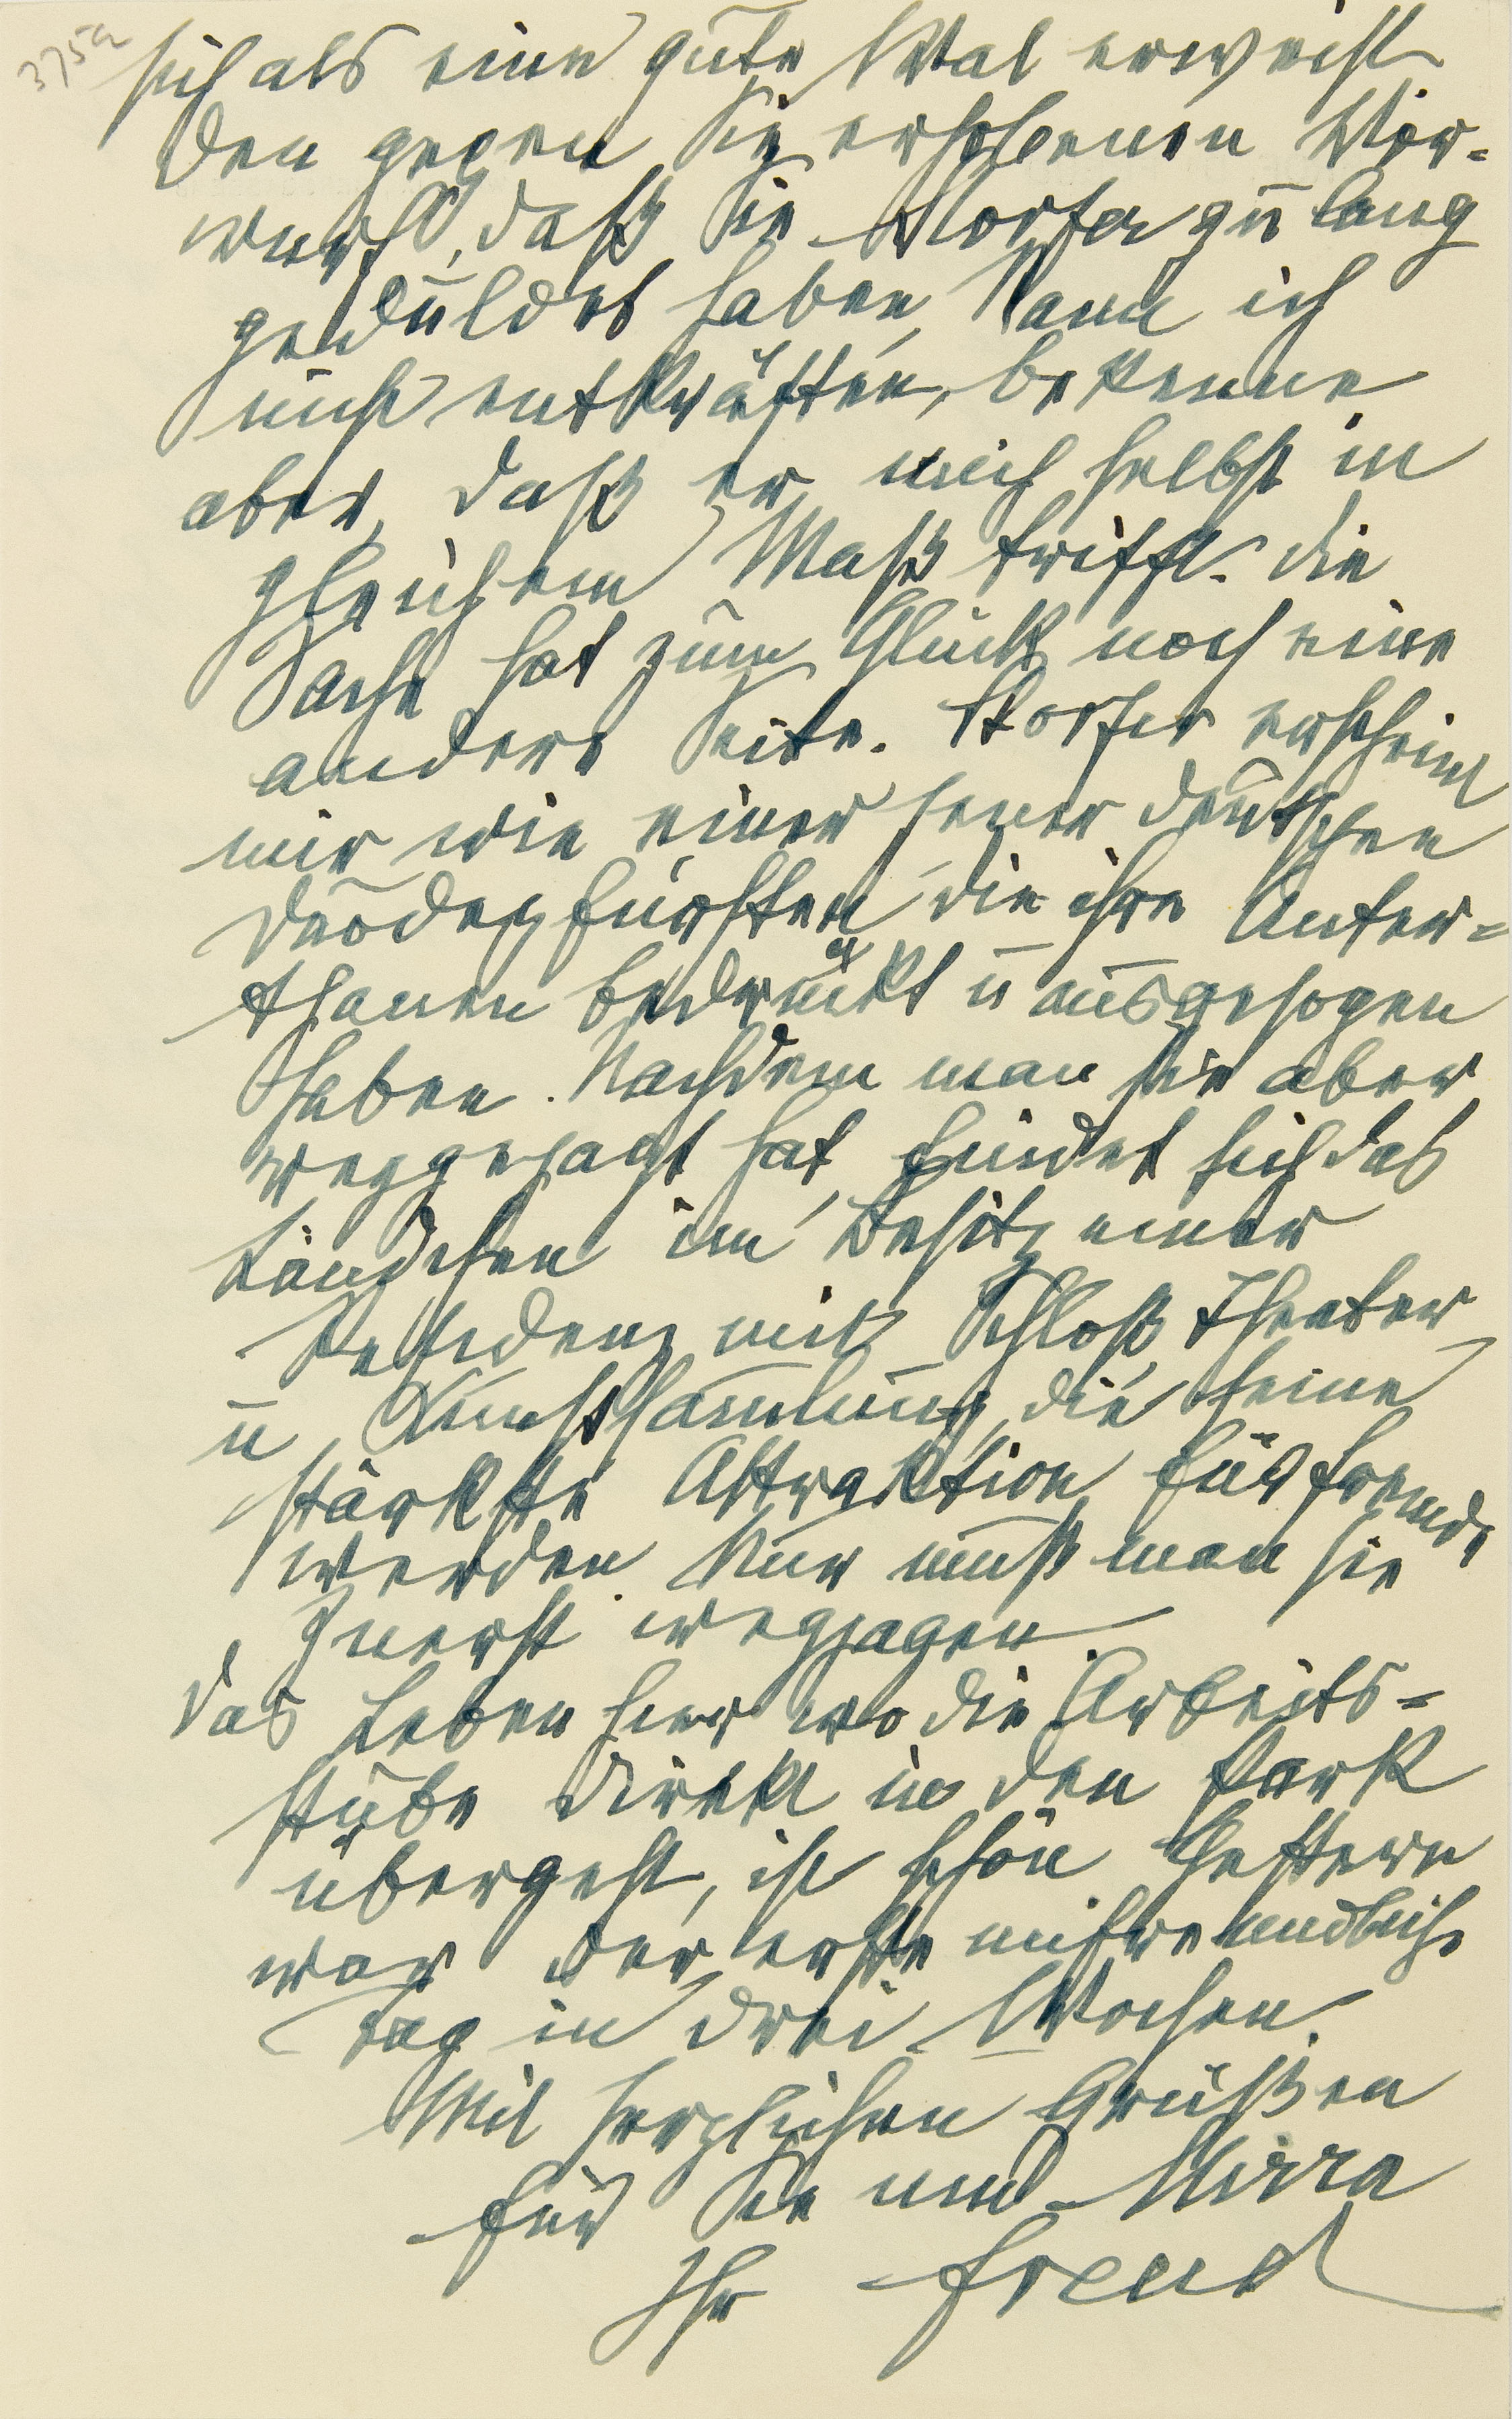 375a
sich als eine gute Wal erweist
Den gegen Sie erhobenen Vor-
wurf, daß Sie Storfer zu lang
geduldet haben, kann ich
nicht entkräften, bekenne
aber, daß er mich selbst in
gleichem Maß trifft. Die
Sache hat zum Glück noch eine
andere Seite. Storfer erscheint
mir wie einer jener deutschen
Duodezfürsten, die ihre Unter-
thanen bedrückt u ausgesogen
haben. Nachdem man sie aber
weggejagt hat, findet sich das
Ländchen im Besitz einer
Residenz mit Schloß, Theater
u Kunstsammlung, die seine
stärkste Attraktion für Fremde
werden. Nur muß man sie
zuerst wegjagen.
Das Leben hier wo die Arbeits-
stube direkt in den Park
übergeht, ist schön Gestern
war der erste unfreundliche
Tag in drei Wochen.
Mit herzlichen Grüßen
für Sie und Mirra
Ihr Freud